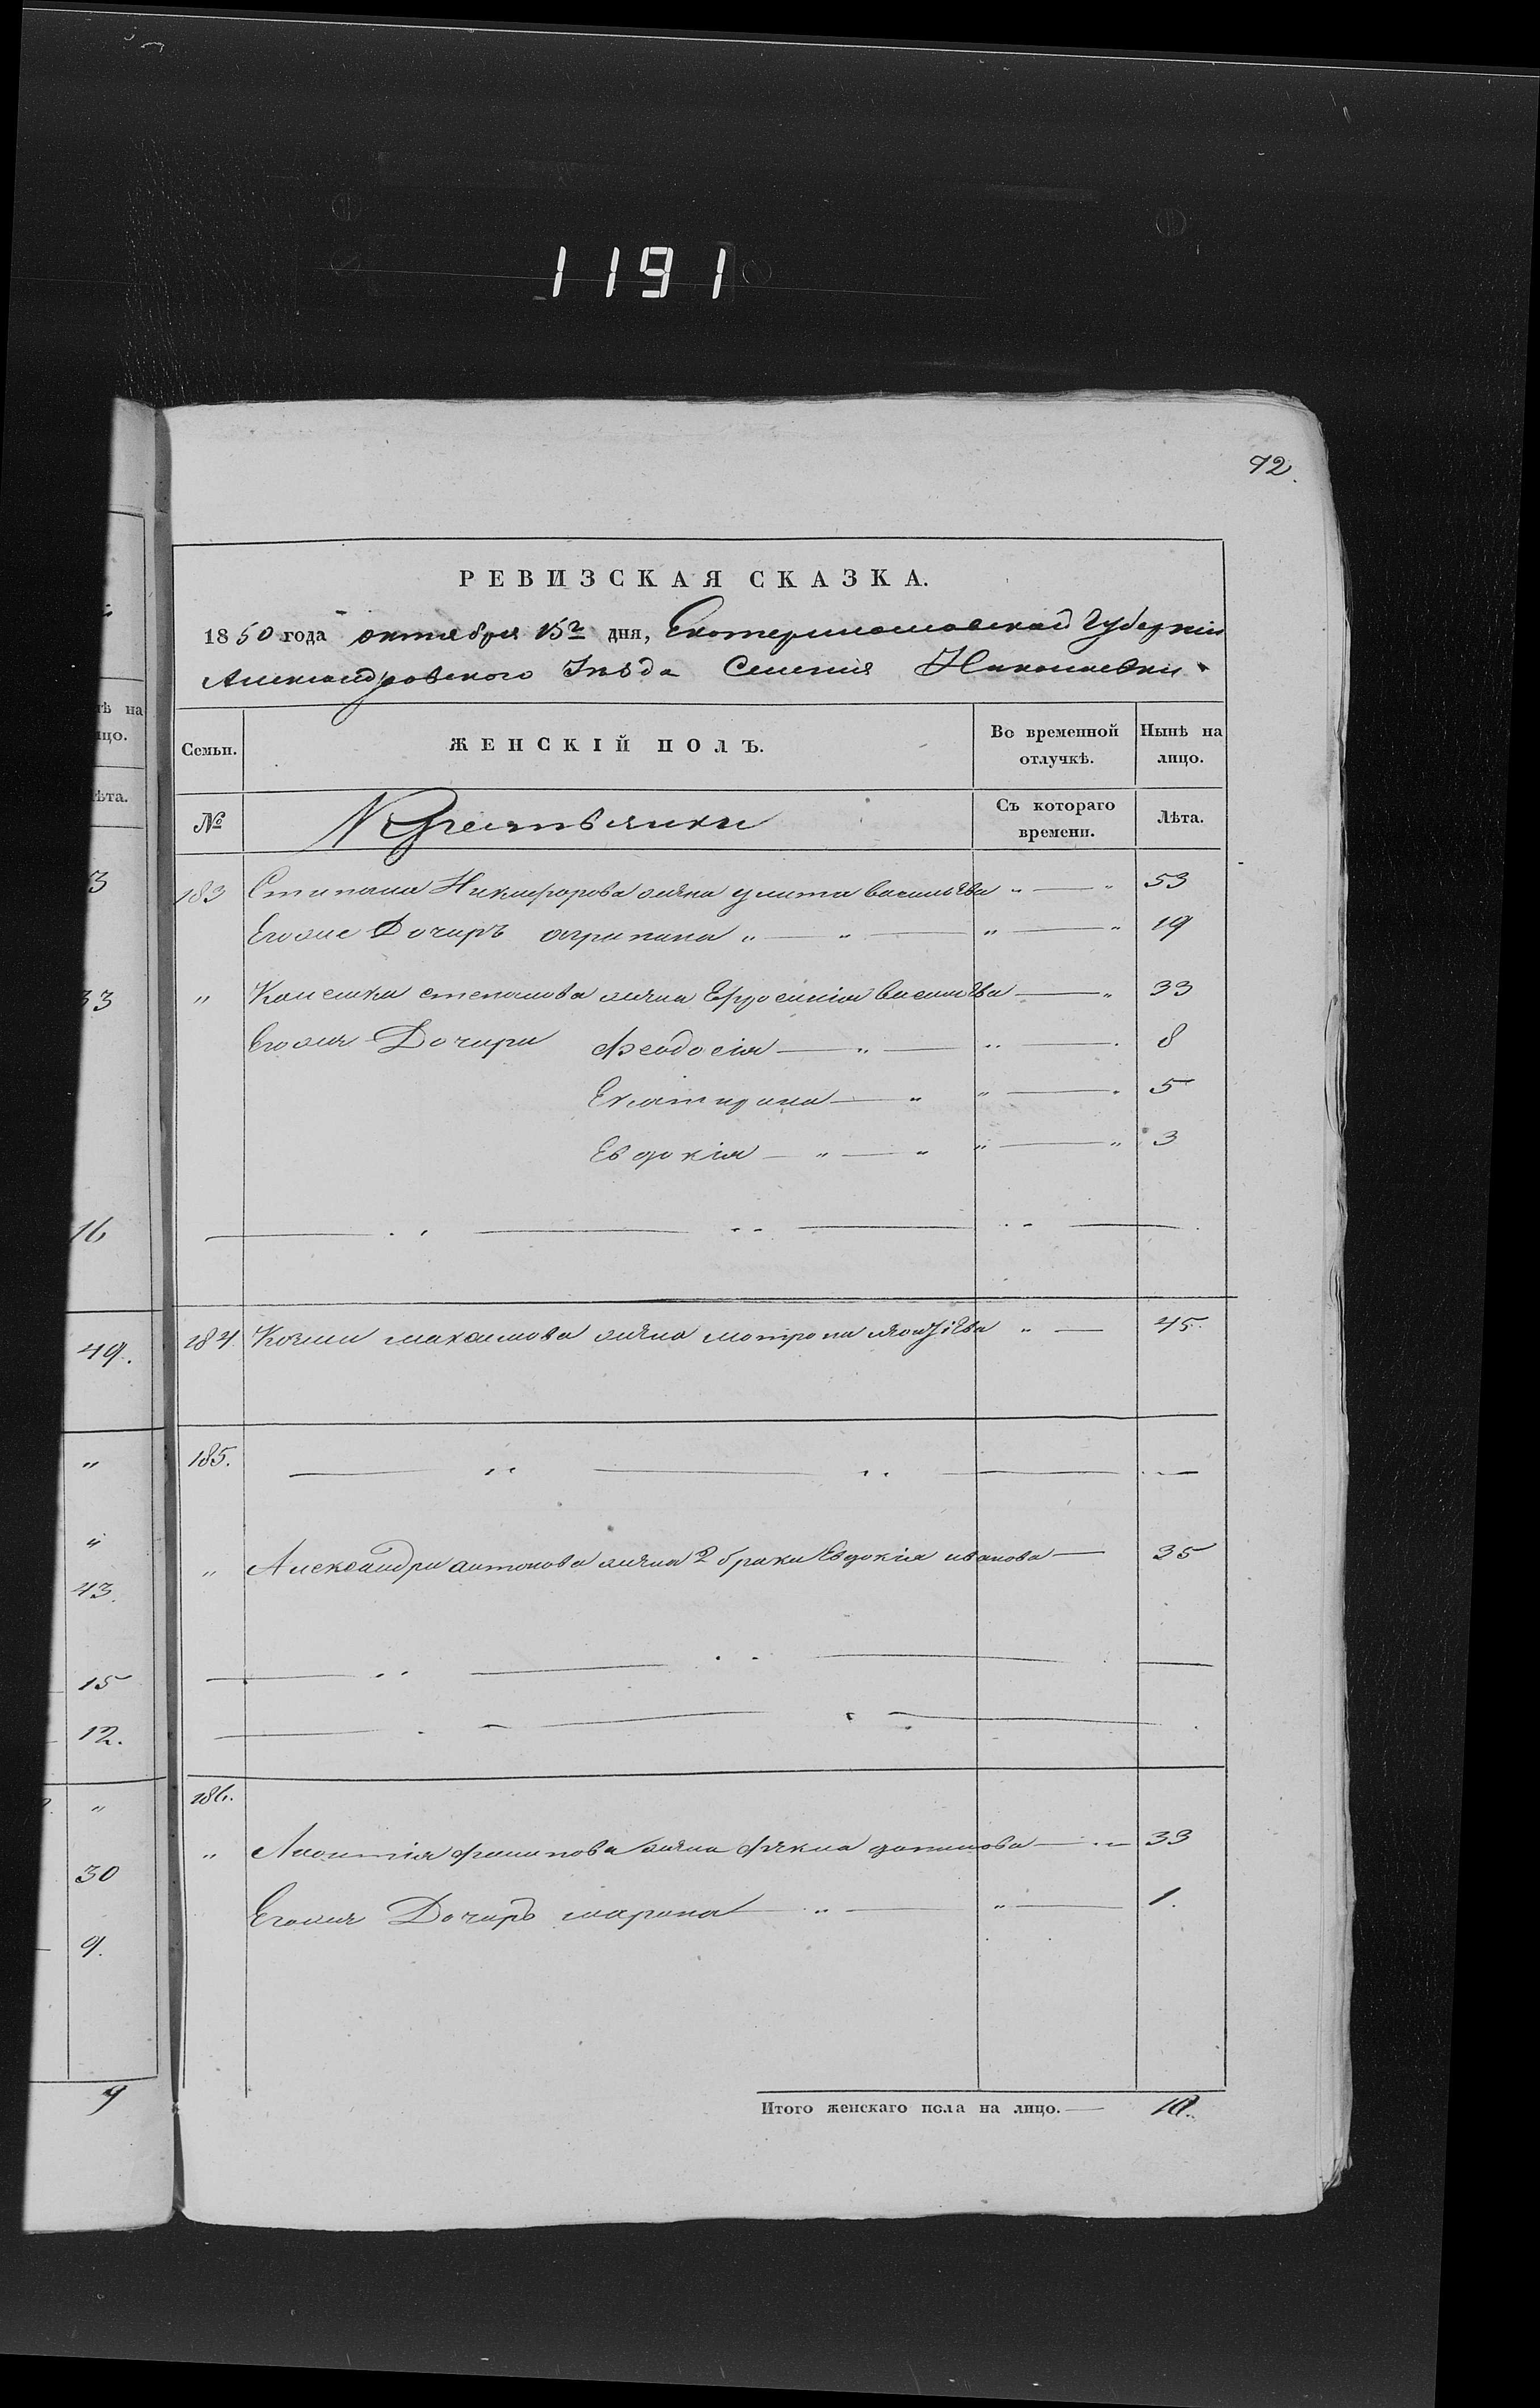 1191
72.
РЕВИЗСКАЯ СКАЗКА.
1850 года октября 15го дня, Екатеринославской Губерніи
Александровского Уезда Селенія Николаевки
Семьи. ЖЕНСКІЙ ПОЛЪ. Во временной отлучкѣ. Нынѣ на лицо.
№ Крестьянки Съ котораго времени. Лѣта.
183 Степана Никифорова жена улита васильева " — " 53
Егоже Дочерь агрипина " — " — " — " 19
" степанова жена Ефросинія васильева — " 33
Егоже Дочери Феодосія — " — " — 8
Екатерина — " " — 5
Евдокія — " — " " — " 3
184 Козмы максимова жена матрона " — 45
185. — " — " — —
" Александра антонова жена 2 брака Евдокія иванова — 35
186.
" Леонтія филипова жена фекла данилова — " — 33
Егоже Дочерь марина — " — " — 1.
Итого женскаго пола на лицо. — 10.
тѣ на
ицо.
ѣта.
3
33
16
49.
"
"
43.
15
12.
"
30
9.
9